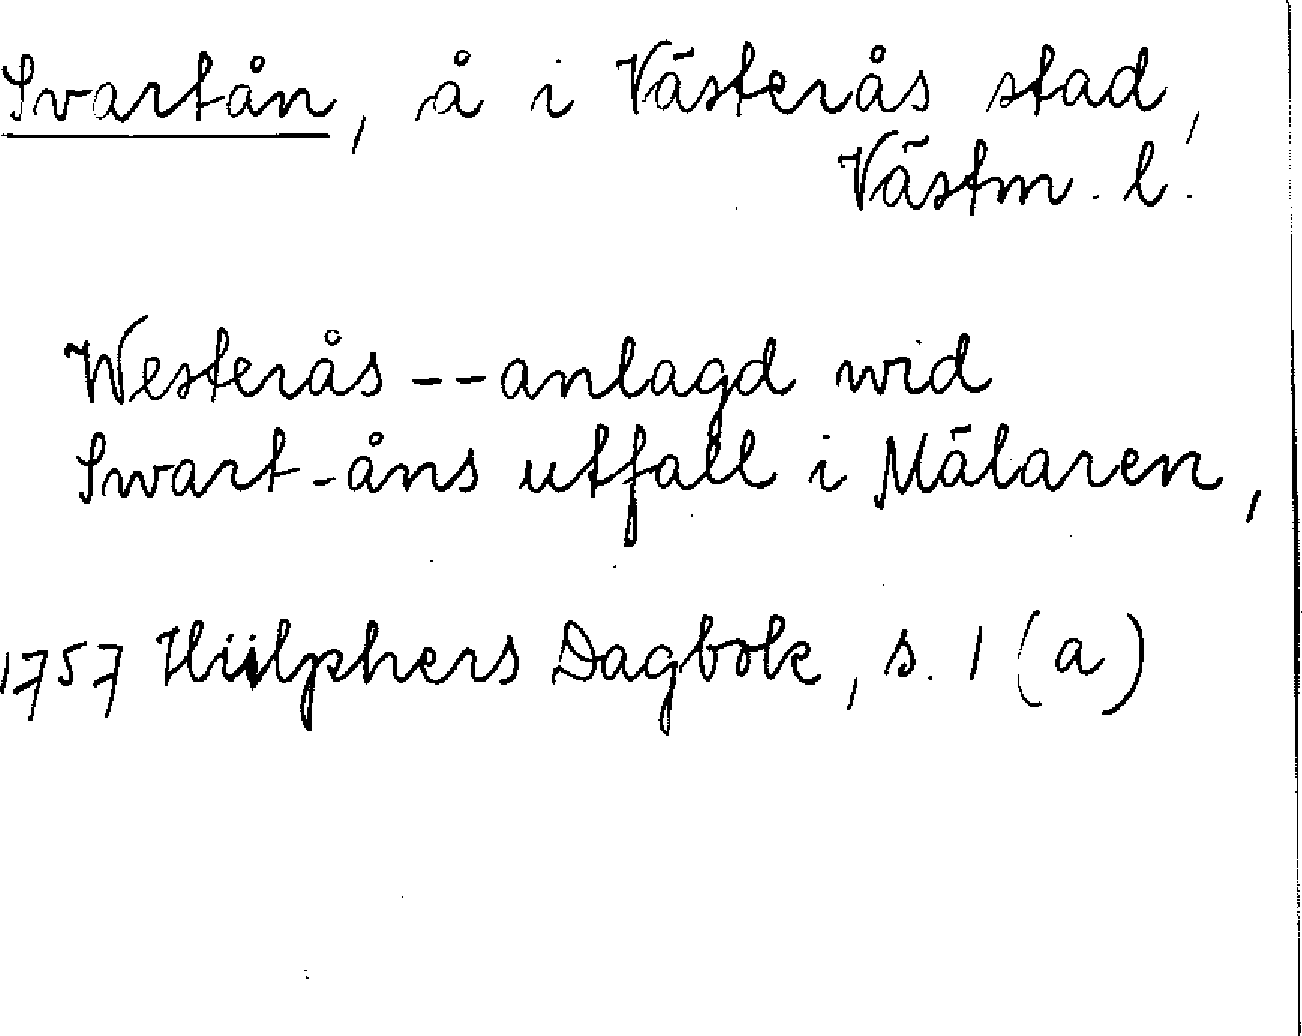 Svartån, å i Västerås stad,
Västm. l.
Westerås -- anlagd wid
Swart-åns utfall i Mälaren,
1757 Hülphers Dagbok, s. 1 (a)